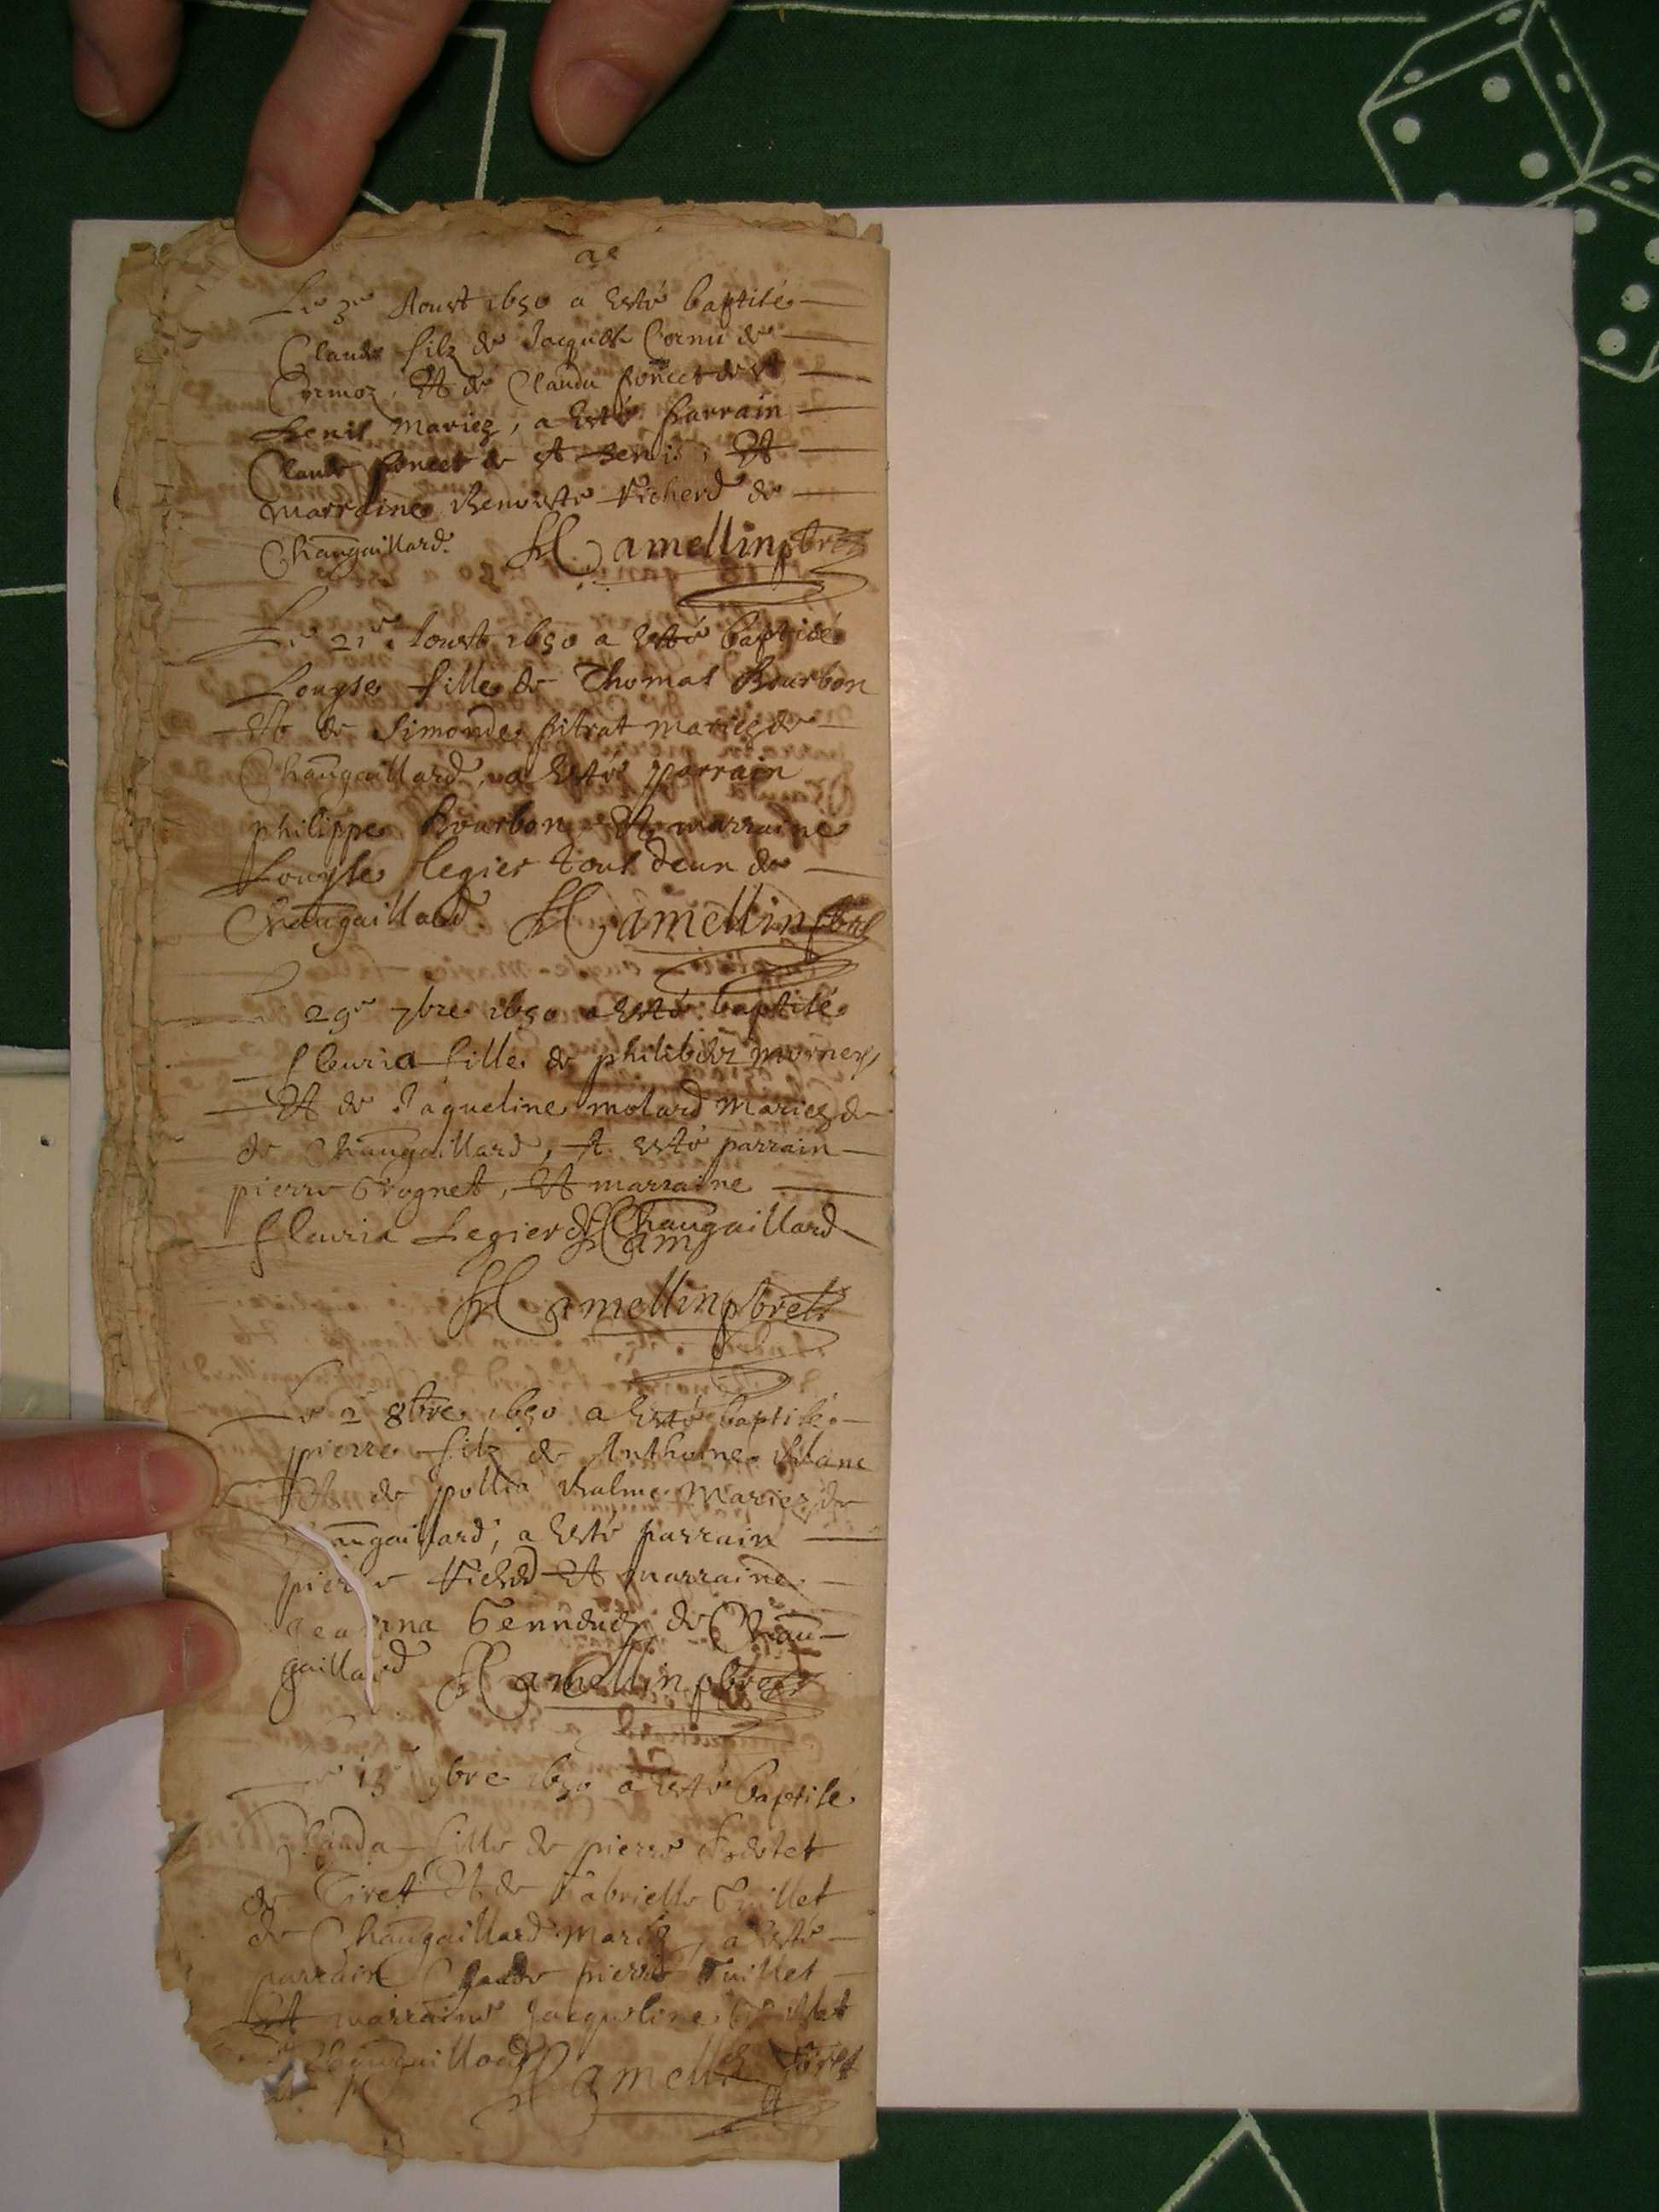 Le 3e Aoust 1650 a esté baptisé
Claude filz de Jacques Cornu de
Cormoz, Et de Clauda poncet de St
Denis mariez, a esté parrain
Claude poncet de St Denis, Et
marraine Benoiste Richerd de
Chaũgaillard. Hamellin pbre
Le 21e Aoust 1650 a esté baptisé
Louyse fille de Thomas Bourbon
Et de Simonde pitrat mariez de
Chaũgaillard, a esté parrain
philippe Bourbon, Et marraine
Louyse legier tous deux de
Chaũgaillard. Hamellin pbre
29e 7bre 1650 a esté baptisé
fleuria fille de philibert morney
Et de Jaqueline molard mariez de
de Chaũgaillard, A esté parrain
pierre Grognet, Et marraine
fleuria Legier de Chaũgaillard
Ham
Hamellin pbre
Le 2e 8bre 1650 a esté baptisé
pierre filz de Anthoine
Et de pollia mariez de
augaillard, a esté parrain
pierre Et marraine
de Chau-
gaillard Hamellin pbre
15e 9bre 1650 a esté baptisé
Clauda fille de pierre
de Tiret Et de Gabrielle Guillet
de Chaũgaillard mariez, a esté
parrain Claude pierre Guillet
Et marraine Jacqueline Guillet
Chaũgaillard Hamellin pbre